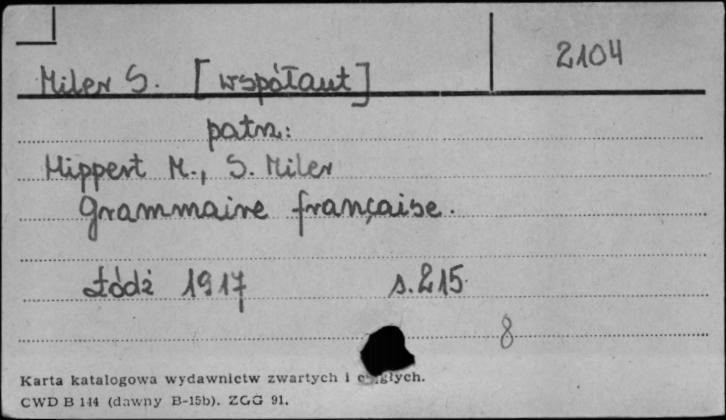 2104
Miler S. [współaut]
patrz:
Hippert M., S. Miler
Grammaire française.
Łódź 1917 s. 215
8
Karta katalogowa wydawnictw zwartych i ciągłych.
CWD B 144 (dawny B-15b). ZGG 91.